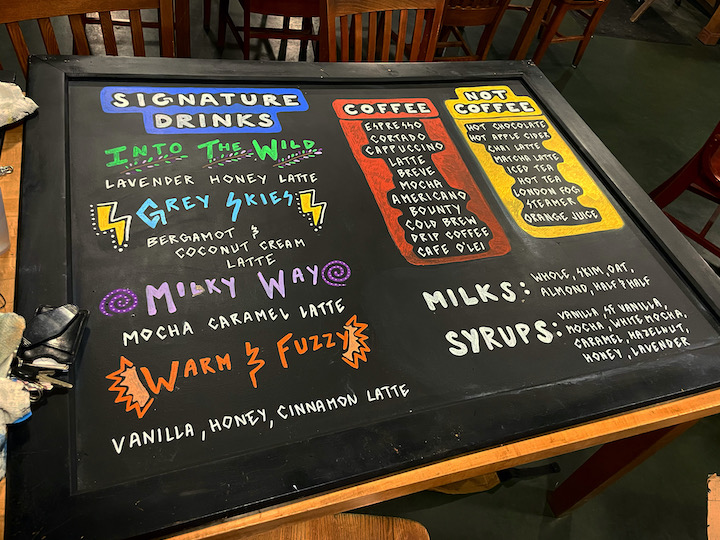 SIGNATURE
DRINKS
INTO THE WILD
LAVENDER HONEY LATTE
GREY SKIES
BERGAMOT &
COCONUT CREAM
LATTE
MILKY WAY
MOCHA CARAMEL LATTE
WARM & FUZZY
VANILLA, HONEY, CINNAMON LATTE
COFFEE
ESPRESSO
CORTADO
CAPPUCCINO
LATTE
BREVE
MOCHA
AMERICANO
BOUNTY
COLD BREW
DRIP COFFEE
CAFE O'LEI
NOT
COFFEE
HOT CHOCOLATE
HOT APPLE CIDER
CHAI LATTE
MATCHA LATTE
ICED TEA
HOT TEA
LONDON FOG
STEAMER
ORANGE JUICE
MILKS: WHOLE, SKIM, OAT,
ALMOND, HALF & HALF
SYRUPS: VANILLA, SF VANILLA,
MOCHA, WHITE MOCHA,
CARAMEL, HAZELNUT,
HONEY, LAVENDER